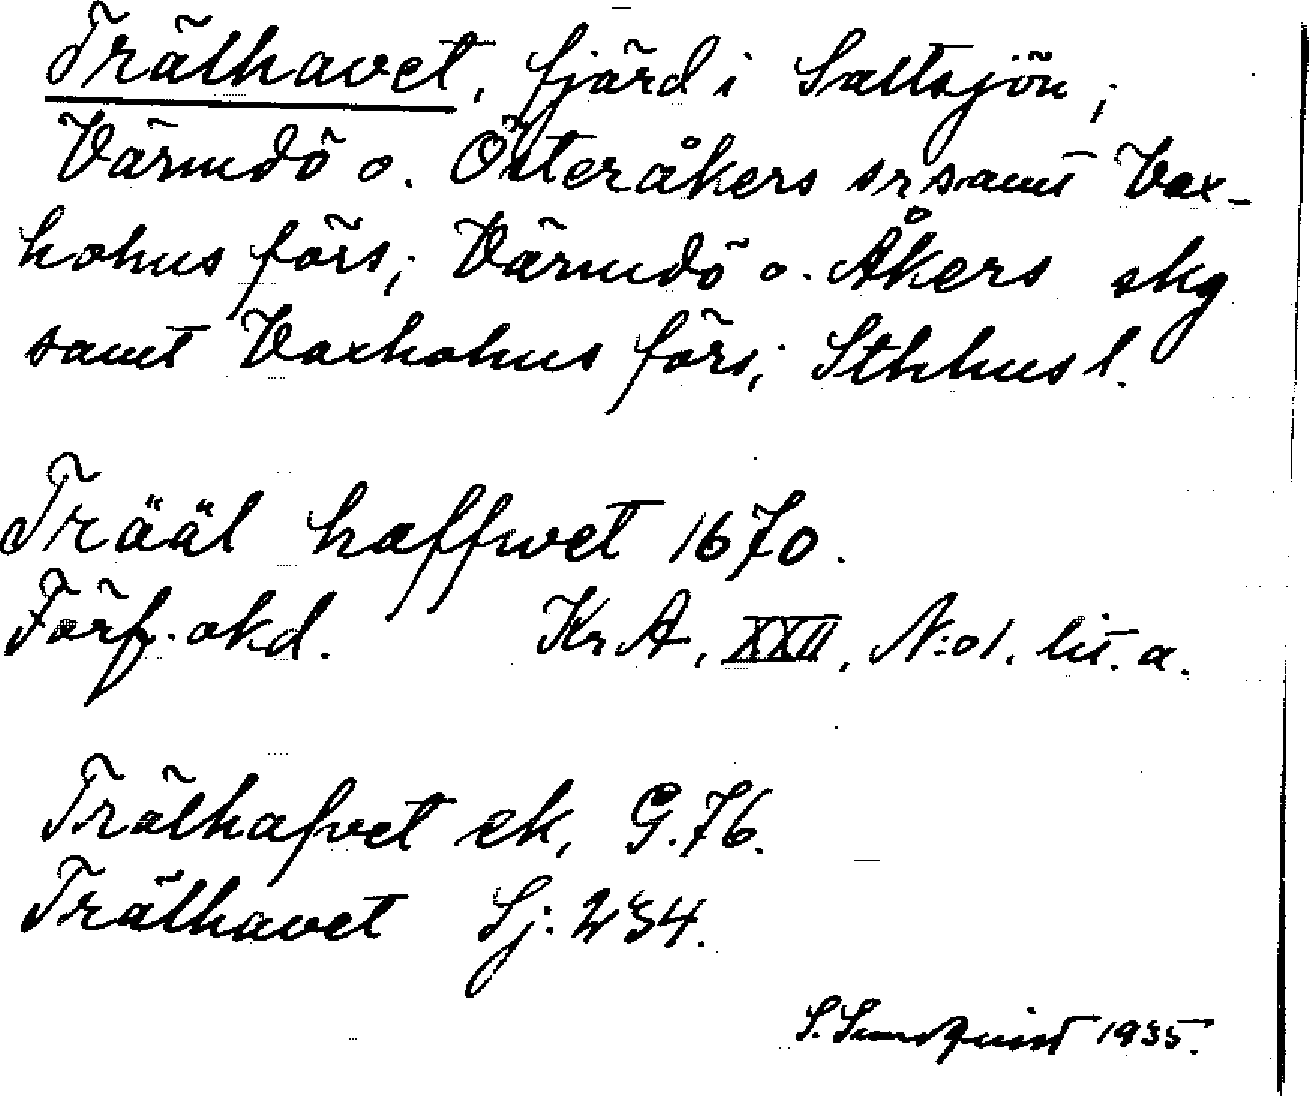 Trälhavet, fjärd i Saltsjön;
Värmdö o. Österåkers sr samt Vax-
holms förs; Värmdö o. Åkers skg
samt Vaxholms förs; Sthlms l.
Trääl haffwet 1670.
Förf. okd. Kr A, XXII, N:o 1. lit. a.
Trälhafvet ek, G. 76.
Trälhavet Sj: 234.
S. Sundquist 1935.